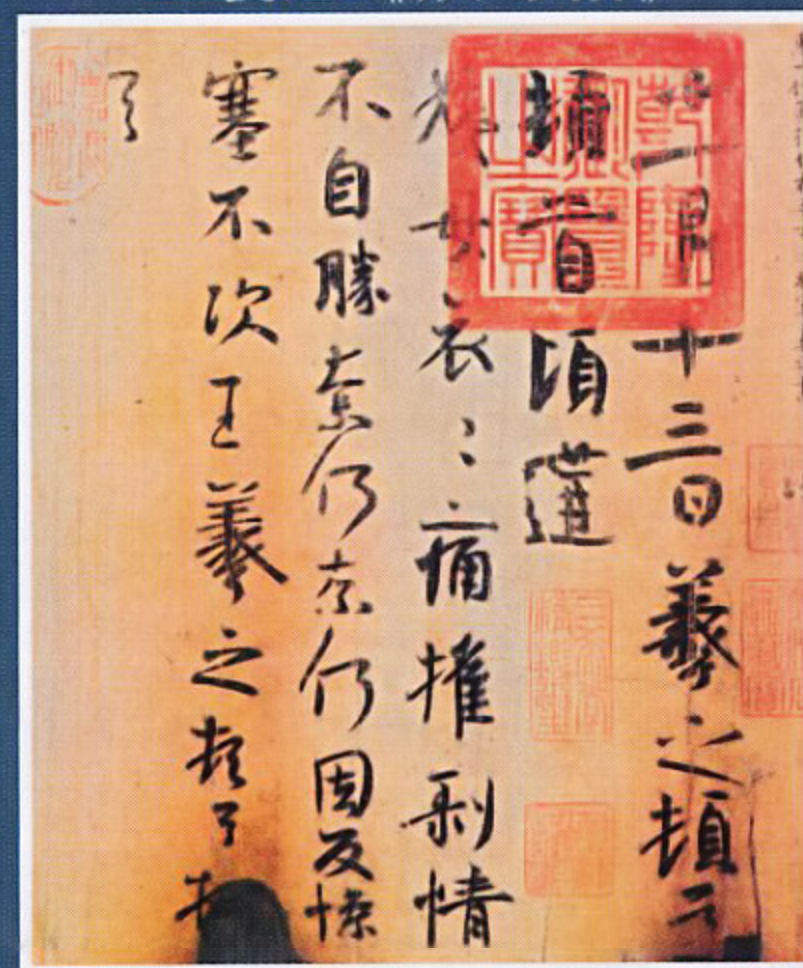 十一月十三日羲之頓首
頓首頃遘
姨母哀〻痛摧剥情
不自勝奈何奈何因反慘
塞不次王羲之頓首頓
首
乾隆御覽之寶